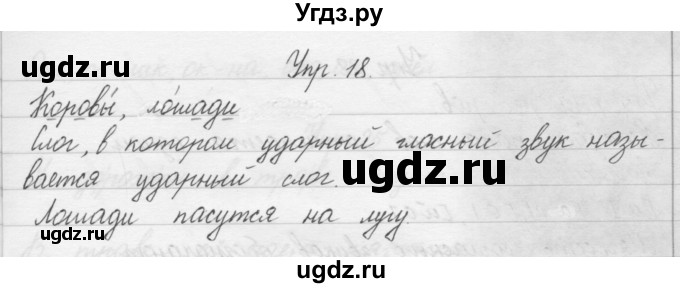 Угдз.ру
ugdz.ru
Упр. 18.
Коро́вы, ло́шади
Слог, в котором ударный гласный звук назы-
вается ударный слог.
ugdz.ru
Лошади пасутся на лугу.
ugdz.ru
ugdz.ru